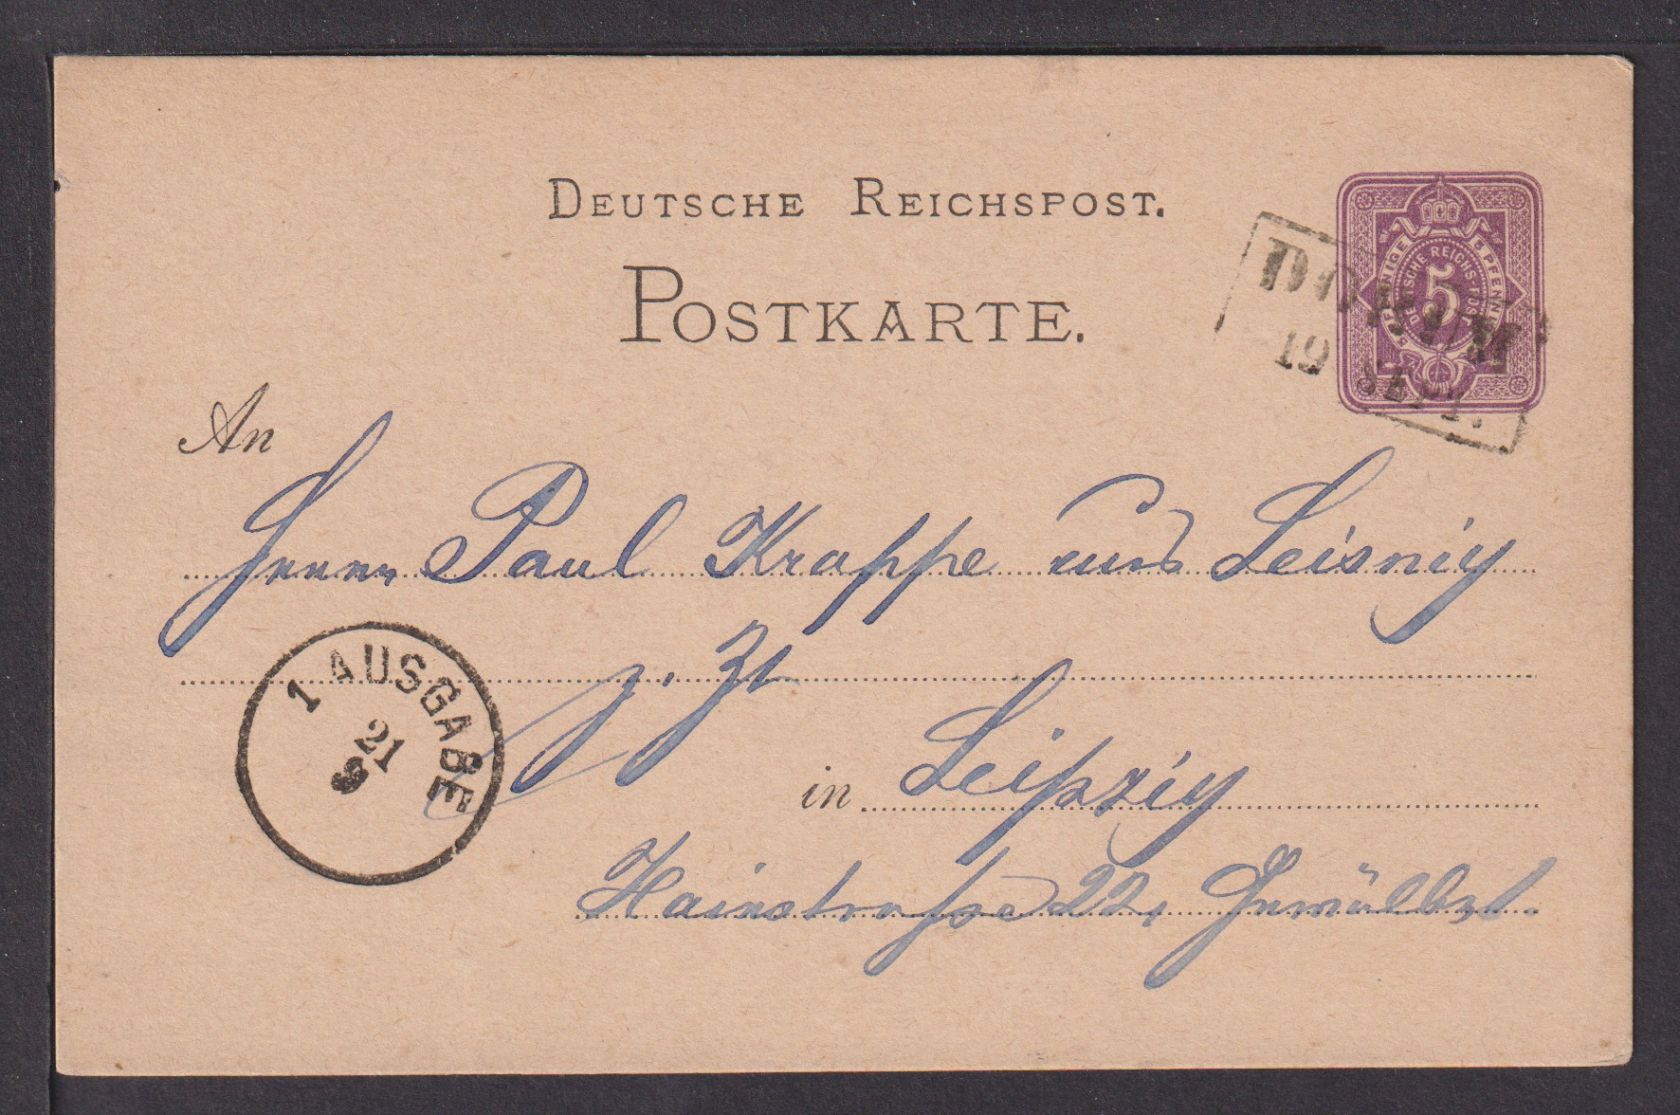 DEUTSCHE REICHSPOST.
POSTKARTE.
5 PFENNIGE 5 PFENNIGE
DEUTSCHE REICHS-POST
5
DORUM
19 SEPT.
An
Herrn Paul Krappe aus Leisnig
z. Zt
in Leipzig
Hainstraße 22, Gewölbe
1 AUSGABE
21
9